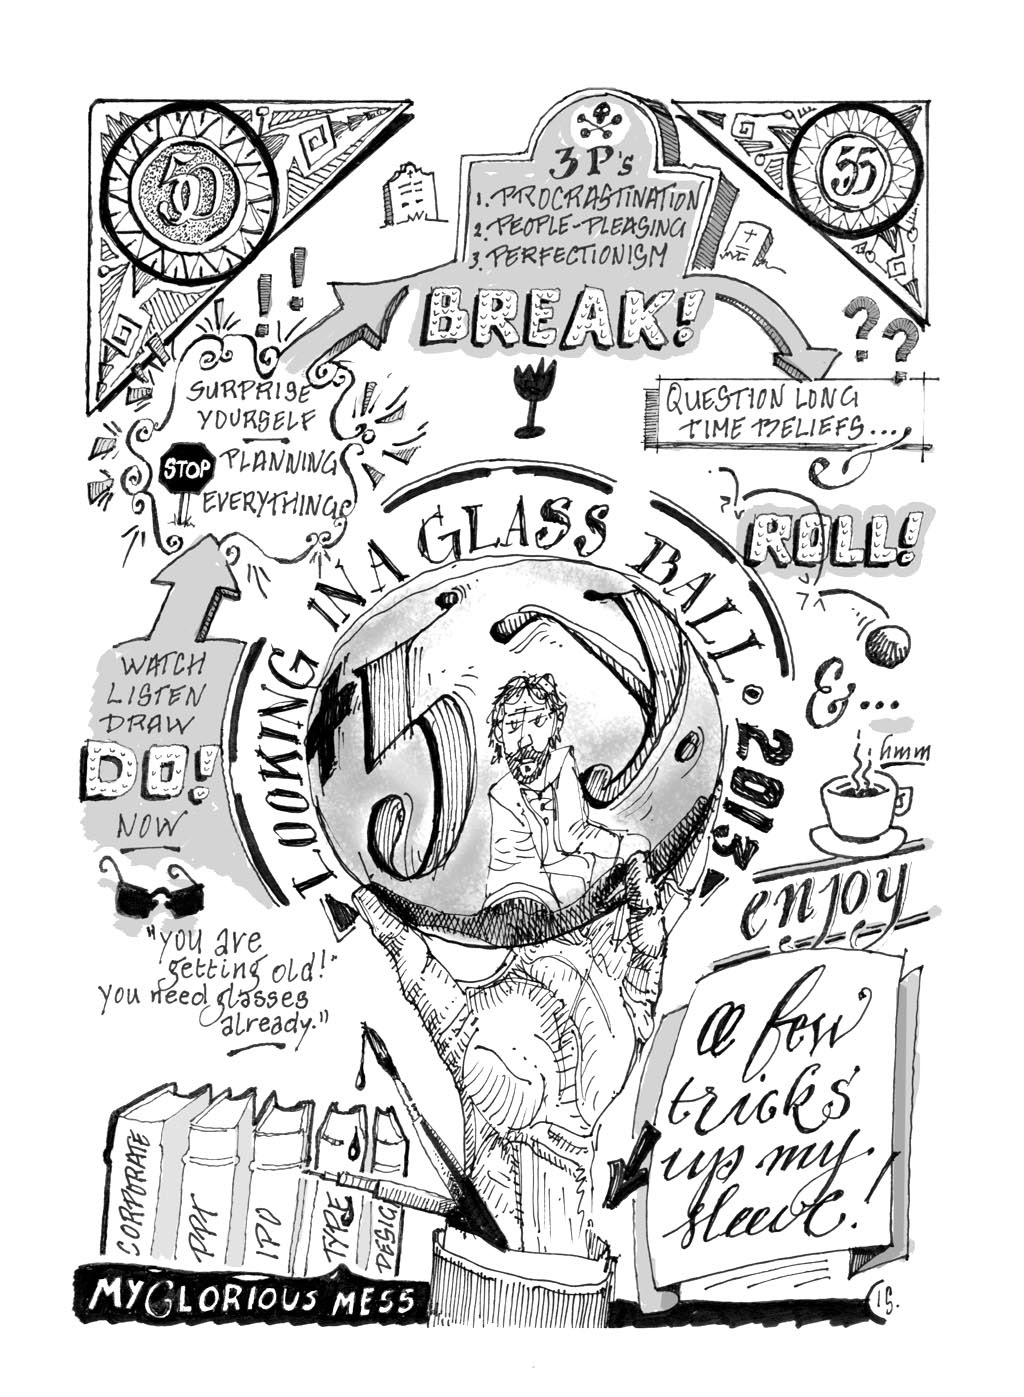 50
55
3 P's
1. PROCRASTINATION
2. PEOPLE-PLEASING
3. PERFECTIONISM
BREAK!
!!
??
SURPRISE
YOURSELF
STOP PLANNING
EVERYTHING
QUESTION LONG
TIME BELIEFS....
ROLL!
LOOKING IN A GLASS BALL • 2013
52
WATCH
LISTEN
DRAW
DO!
NOW
&...
hmm
enjoy
"you are
getting old!"
you need glasses
already."
a few
tricks
up my
sleeve!
CORPORATE
PPT
IPO
TYPE
DESIG
MY GLORIOUS MESS
15.